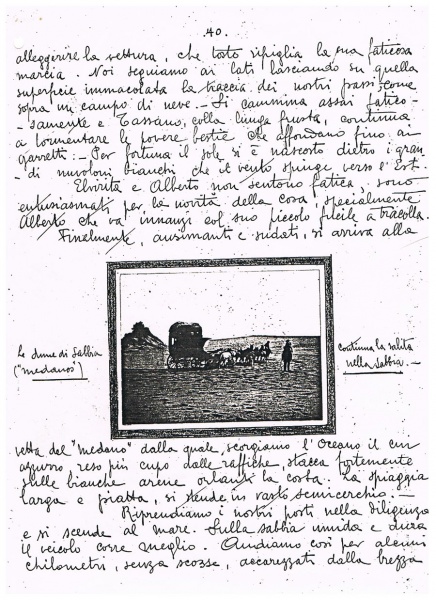 40.
alleggerire la vettura, che tosto ripiglia la sua faticosa
marcia. Noi seguiamo ai lati lasciando su quella
superficie immacolata la traccia dei nostri passi, come
sopra un campo di neve. - Si cammina assai fatico-
-samente e Tassano, colla lunga frusta, continua
a tormentare le povere bestie che affondano fino ai
garretti. - Per fortuna il sole si è nascosto dietro i gran-
-di nuvoloni bianchi che il vento spinge verso l'Est.
Elvirita e Alberto non sentono fatica, sono
entusiasmati per la novità della cosa, specialmente
Alberto che va innanzi col suo piccolo fucile a tracolla.
Finalmente, ansimanti e sudati, si arriva alla
Le dune di sabbia
("medanos")
continua la salita
nella sabbia. -
vetta del "medano" dalla quale, scorgiamo l'Oceano il cui
azzurro, reso più cupo dalle raffiche, stacca fortemente
sulle bianche arene orlanti la costa. La spiaggia
larga e piatta, si stende in vasto semicerchio. -
Riprendiamo i nostri posti nella diligenza
e si scende al mare. Sulla sabbia umida e dura
il veicolo corre meglio. Andiamo così per alcuni
chilometri, senza scosse, accarezzati dalla brezza